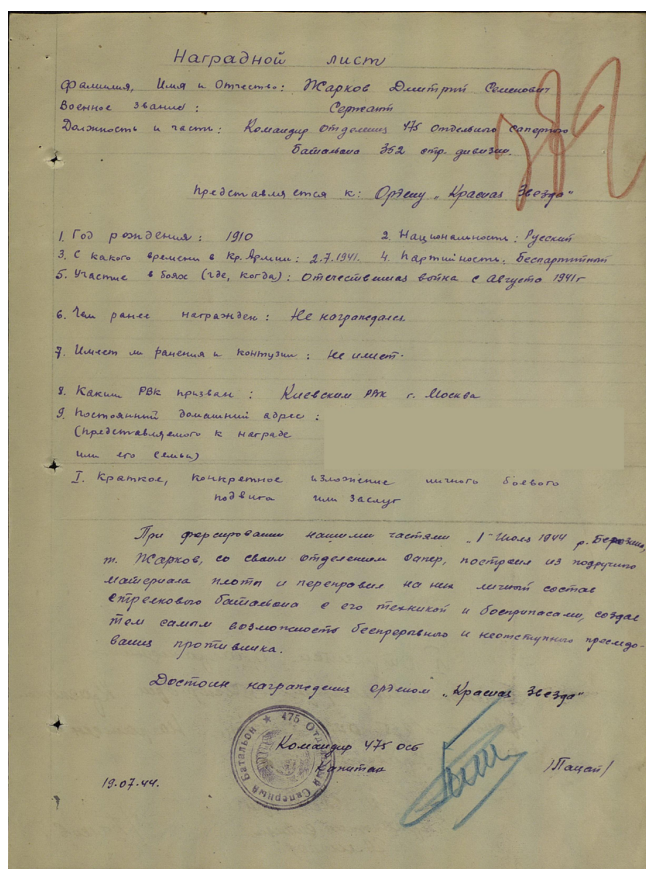 Наградной лист
Фамилия, Имя и Отчество: Жарков Дмитрий Семенович
Военное звание: Сержант
Должность и часть: Командир отделения 475 отдельного саперного
Батальона 352 стр. дивизии.
382
Представляется к: Ордену „Красная Звезда"
1. Год рождения: 1910 2. Национальность: Русский
3. С какого времени в Кр. Армии: 2.7.1941. 4. Партийность: Беспартийный
5. Участие в боях (где, когда): Отечественная война с августа 1941 г
6. Чем ранее награжден: Не награждался
7. Имеет ли ранения и контузии: Не имеет.
8. Каким РВК призван: Киевским РВК г. Москва
9. Постоянный домашний адрес:
(представляемого к награде
или его семьи)
I. Краткое, конкретное изложение личного боевого
подвига или заслуг
При форсировании нашими частями 1 Июля 1944 р. Березина,
т. Жарков, со своим отделением сапер, построил из подручного
материала плоты и переправил на них личный состав
стрелкового батальона с его техникой и боеприпасами, создав
тем самым возможность беспрерывного и неотступного преследо-
вания противника.
Достоин награждения орденом „Красная Звезда"
★ 475 Отдельный Саперный Батальон
Командир 475 осб
Капитан /Пацай/
19.07.44.